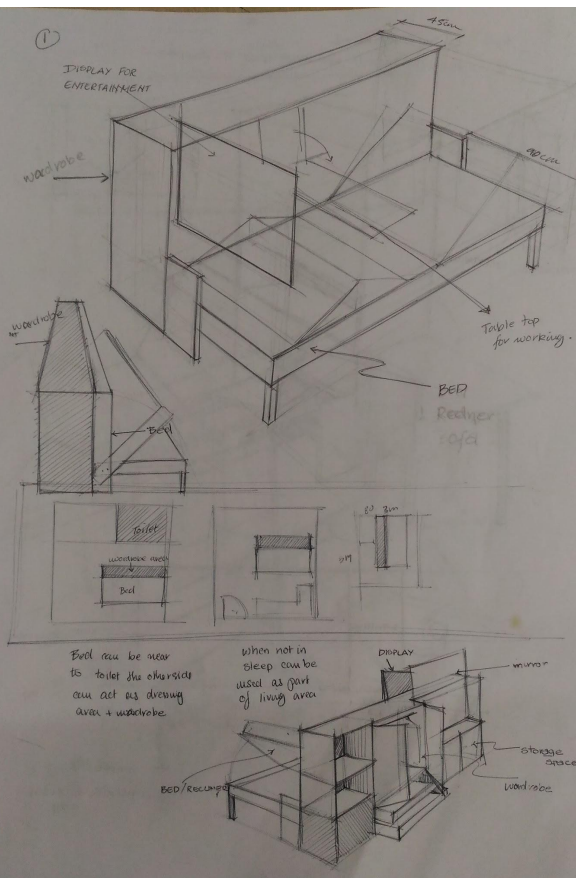 1
45cm
DISPLAY FOR
ENTERTAINMENT
wardrobe
90cm
Table top
for working.
BED
Recliner
sofa
wardrobe
Bed
Toilet
wardrobe area
Bed
Bed can be near
to toilet the otherside
can act as dressing
area + wardrobe
when not in
sleep can be
used as part
of living area
DISPLAY
mirror
storage
space
wardrobe
BED/RECLINER